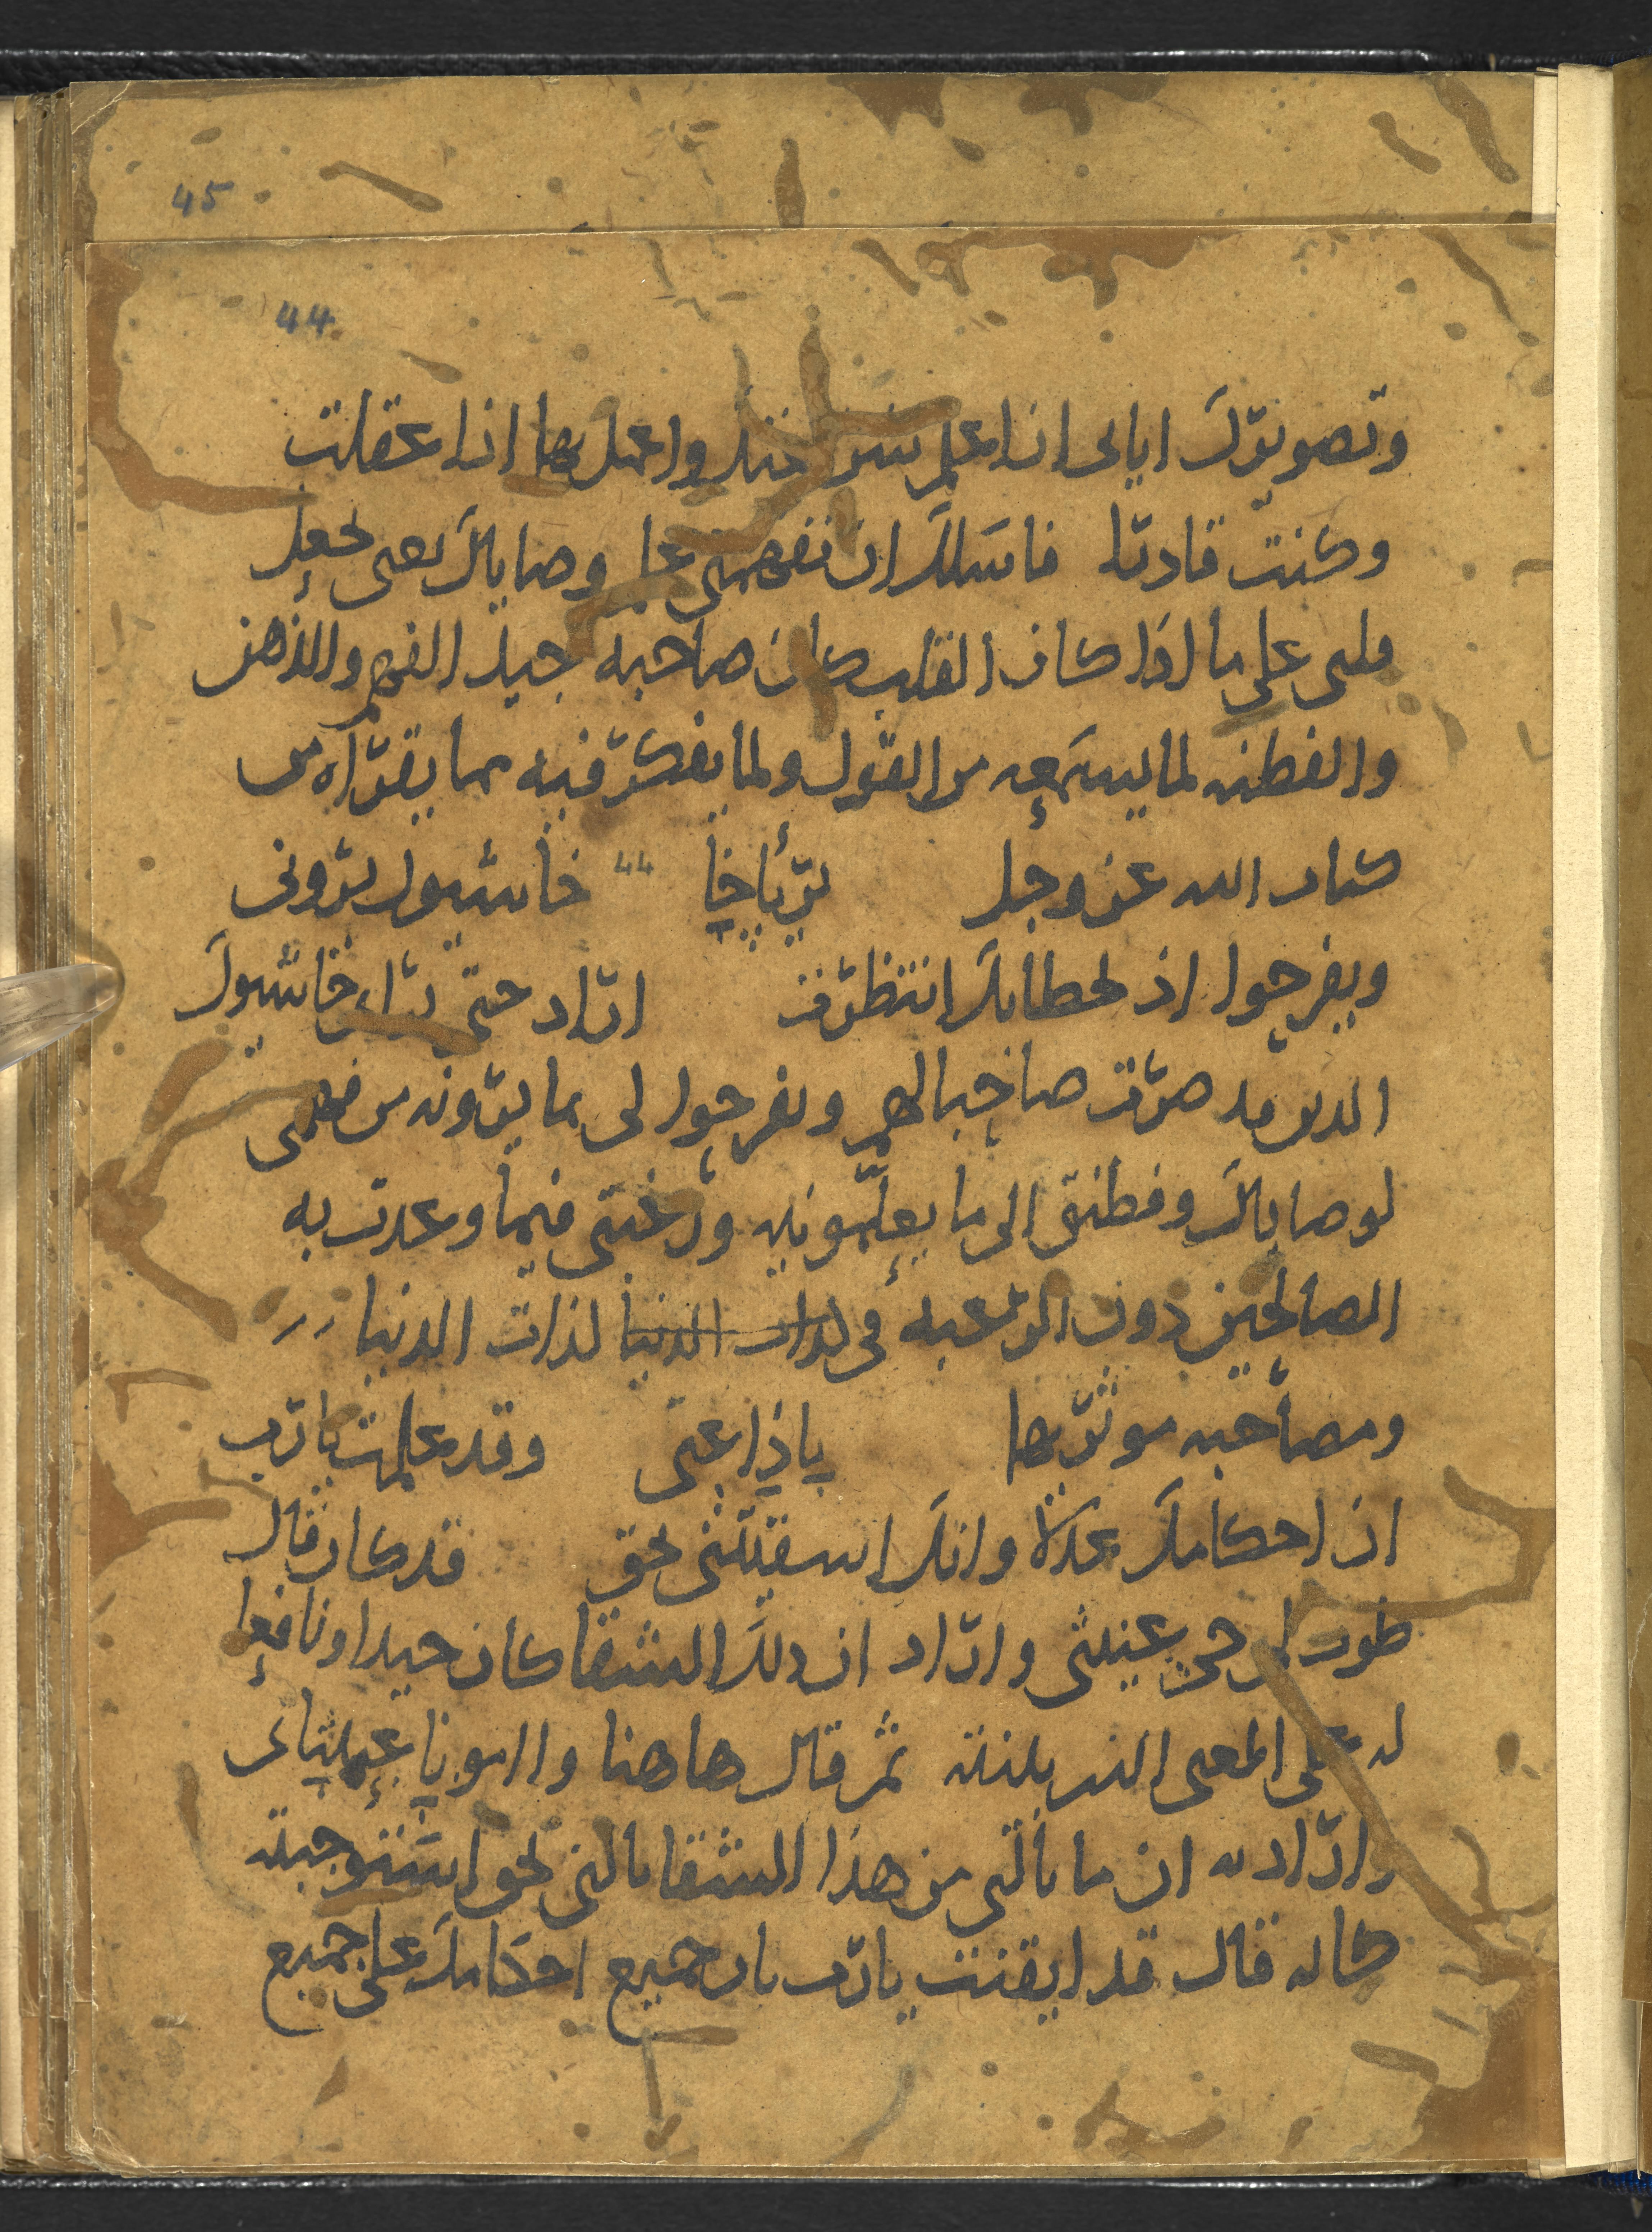 45
44
وتصويرك اياى اذا علم واعمل بها اذا عقلت
وكنت قادرا فاسلك ان تفهمنى وصاياك يعنى تجعل
قلبى على ما اذا كان القلب كان صاحبه جيد الفهم والذهن
والفطنه لما يسمعه من القول ولما يفكر فيه مما يقراه من
كتاب الله عز وجل يرياخا 44 خاشيول يرونى
ويفرحوا اذ لخطابك انتظرت اراد حتى يرا خاشيول
الذين قد صرت صاحبا لهم ويفرحوا لى بما يرونه من فهمى
لوصاياك وفطنتى الى ما يعلمونيه ورغبتى فيما وعدت به
الصالحين دون الرغبه فى لذات الدنيا لذات الدنيا
ومصاحبه موثريها ياذاعتى وقد علمت يا رب
ان احكامك عدلا وانك اشقيتنى بحق قد كان قال
طوب لى حى عنيثى واراد ان ذلك الشقا كان جيدا ونافعا
له على المعنى الذى بينته ثم قال هاهنا واامونا عنيتانى
واراد به ان ما نالنى من هذا الشقا نالنى بحق استوجبته
كاله قال قد ايقنت يا رب بان جميع احكامك على جميع